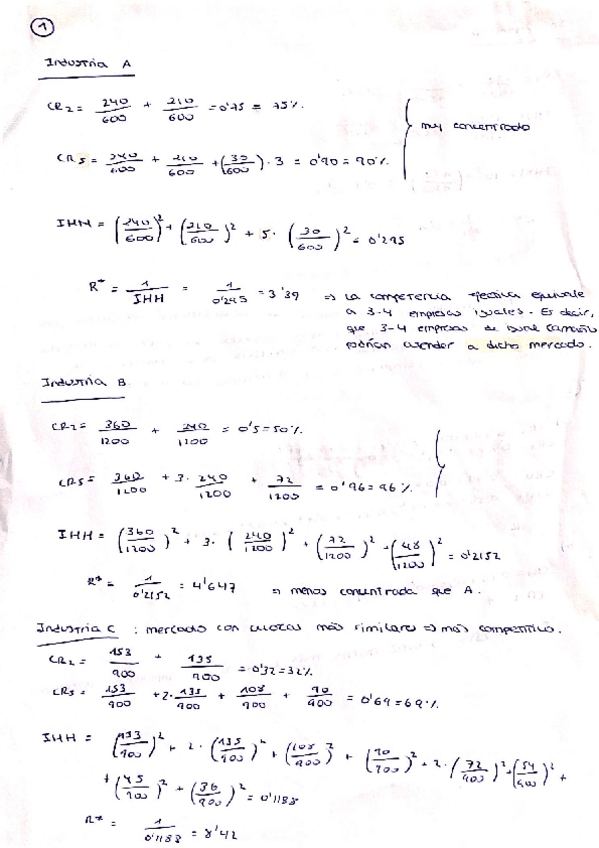 1
Industria A
CR2 = 240/600 + 210/600 = 0'75 = 75%.
muy concentrado
CR5 = 240/600 + 210/600 + (30/600) · 3 = 0'90 = 90%.
IHH = (240/600)² + (210/600)² + 5 · (30/600)² = 0'295
R* = 1/IHH = 1/0'295 = 3'39 => La competencia efectiva equivale
a 3-4 empresas iguales. Es decir,
que 3-4 empresas de igual tamaño
podrían atender a dicho mercado.
Industria B
CR2 = 360/1200 + 240/1200 = 0'5 = 50%.
CR5 = 360/1200 + 3 · 240/1200 + 72/1200 = 0'96 = 96%.
IHH = (360/1200)² + 3 · (240/1200)² + (72/1200)² + (48/1200)² = 0'2152
R* = 1/0'2152 = 4'647 => menos concentrada que A.
Industria C : mercado con cuotas más similares => más competitivo.
CR2 = 153/900 + 135/900 = 0'32 = 32%
CR5 = 153/900 + 2 · 135/900 + 108/900 + 90/900 = 0'69 = 69%.
IHH = (153/900)² + 2 · (135/900)² + (108/900)² + (90/900)² + 2 · (72/900)² + (54/900)² +
+ (45/900)² + (36/900)² = 0'1188
R* = 1/0'1188 = 8'42